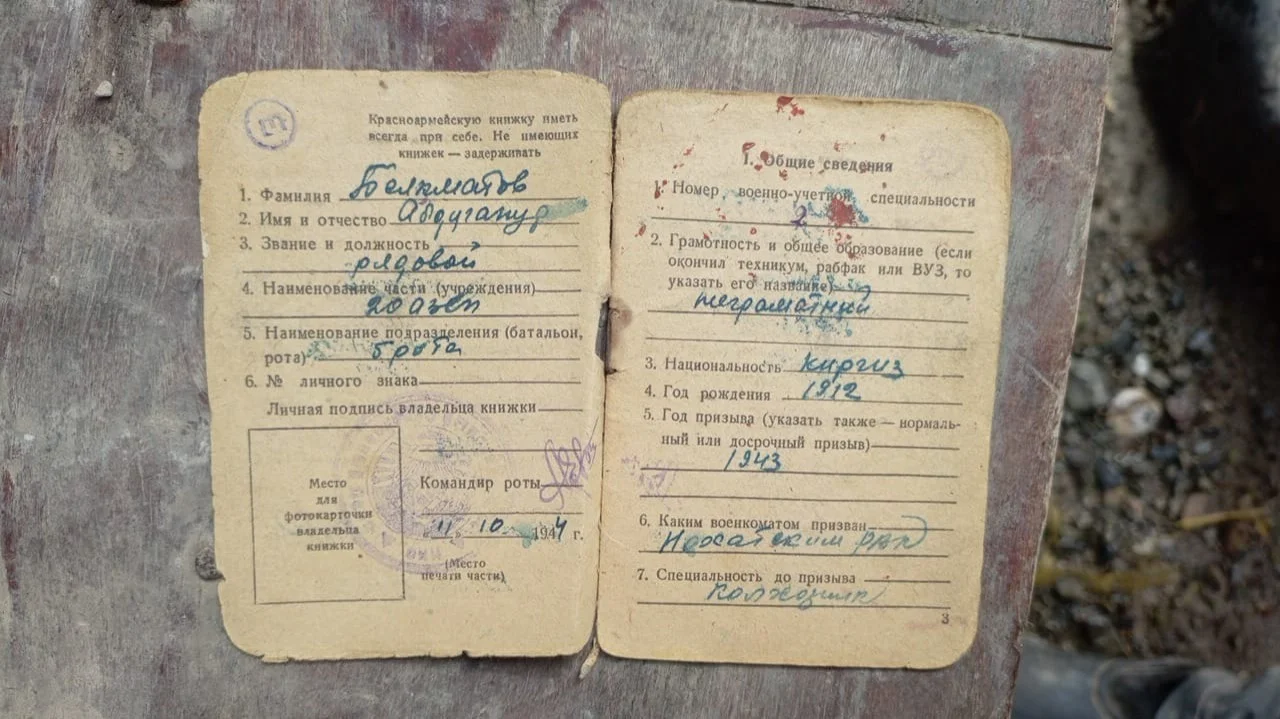 Красноармейскую книжку иметь
всегда при себе. Не имеющих
книжек — задерживать
1. Фамилия Бекматов
2. Имя и отчество Абдуганур
3. Звание и должность
рядовой
4. Наименование части (учреждения)
20 азсп
5. Наименование подразделения (батальон,
рота) 5 рота
6. № личного знака
Личная подпись владельца книжки
Место
для
фотокарточки
владельца
книжки
Командир роты
"11" 10 1944 г.
(Место
печати части)
I. Общие сведения
1. Номер военно-учетной специальности
2
2. Грамотность и общее образование (если
окончил техникум, рабфак или ВУЗ, то
указать его название)
неграматный
3. Национальность киргиз
4. Год рождения 1912
5. Год призыва (указать также — нормаль-
ный или досрочный призыв)
1943
6. Каким военкоматом призван
РВК
7. Специальность до призыва
Колхозник
3